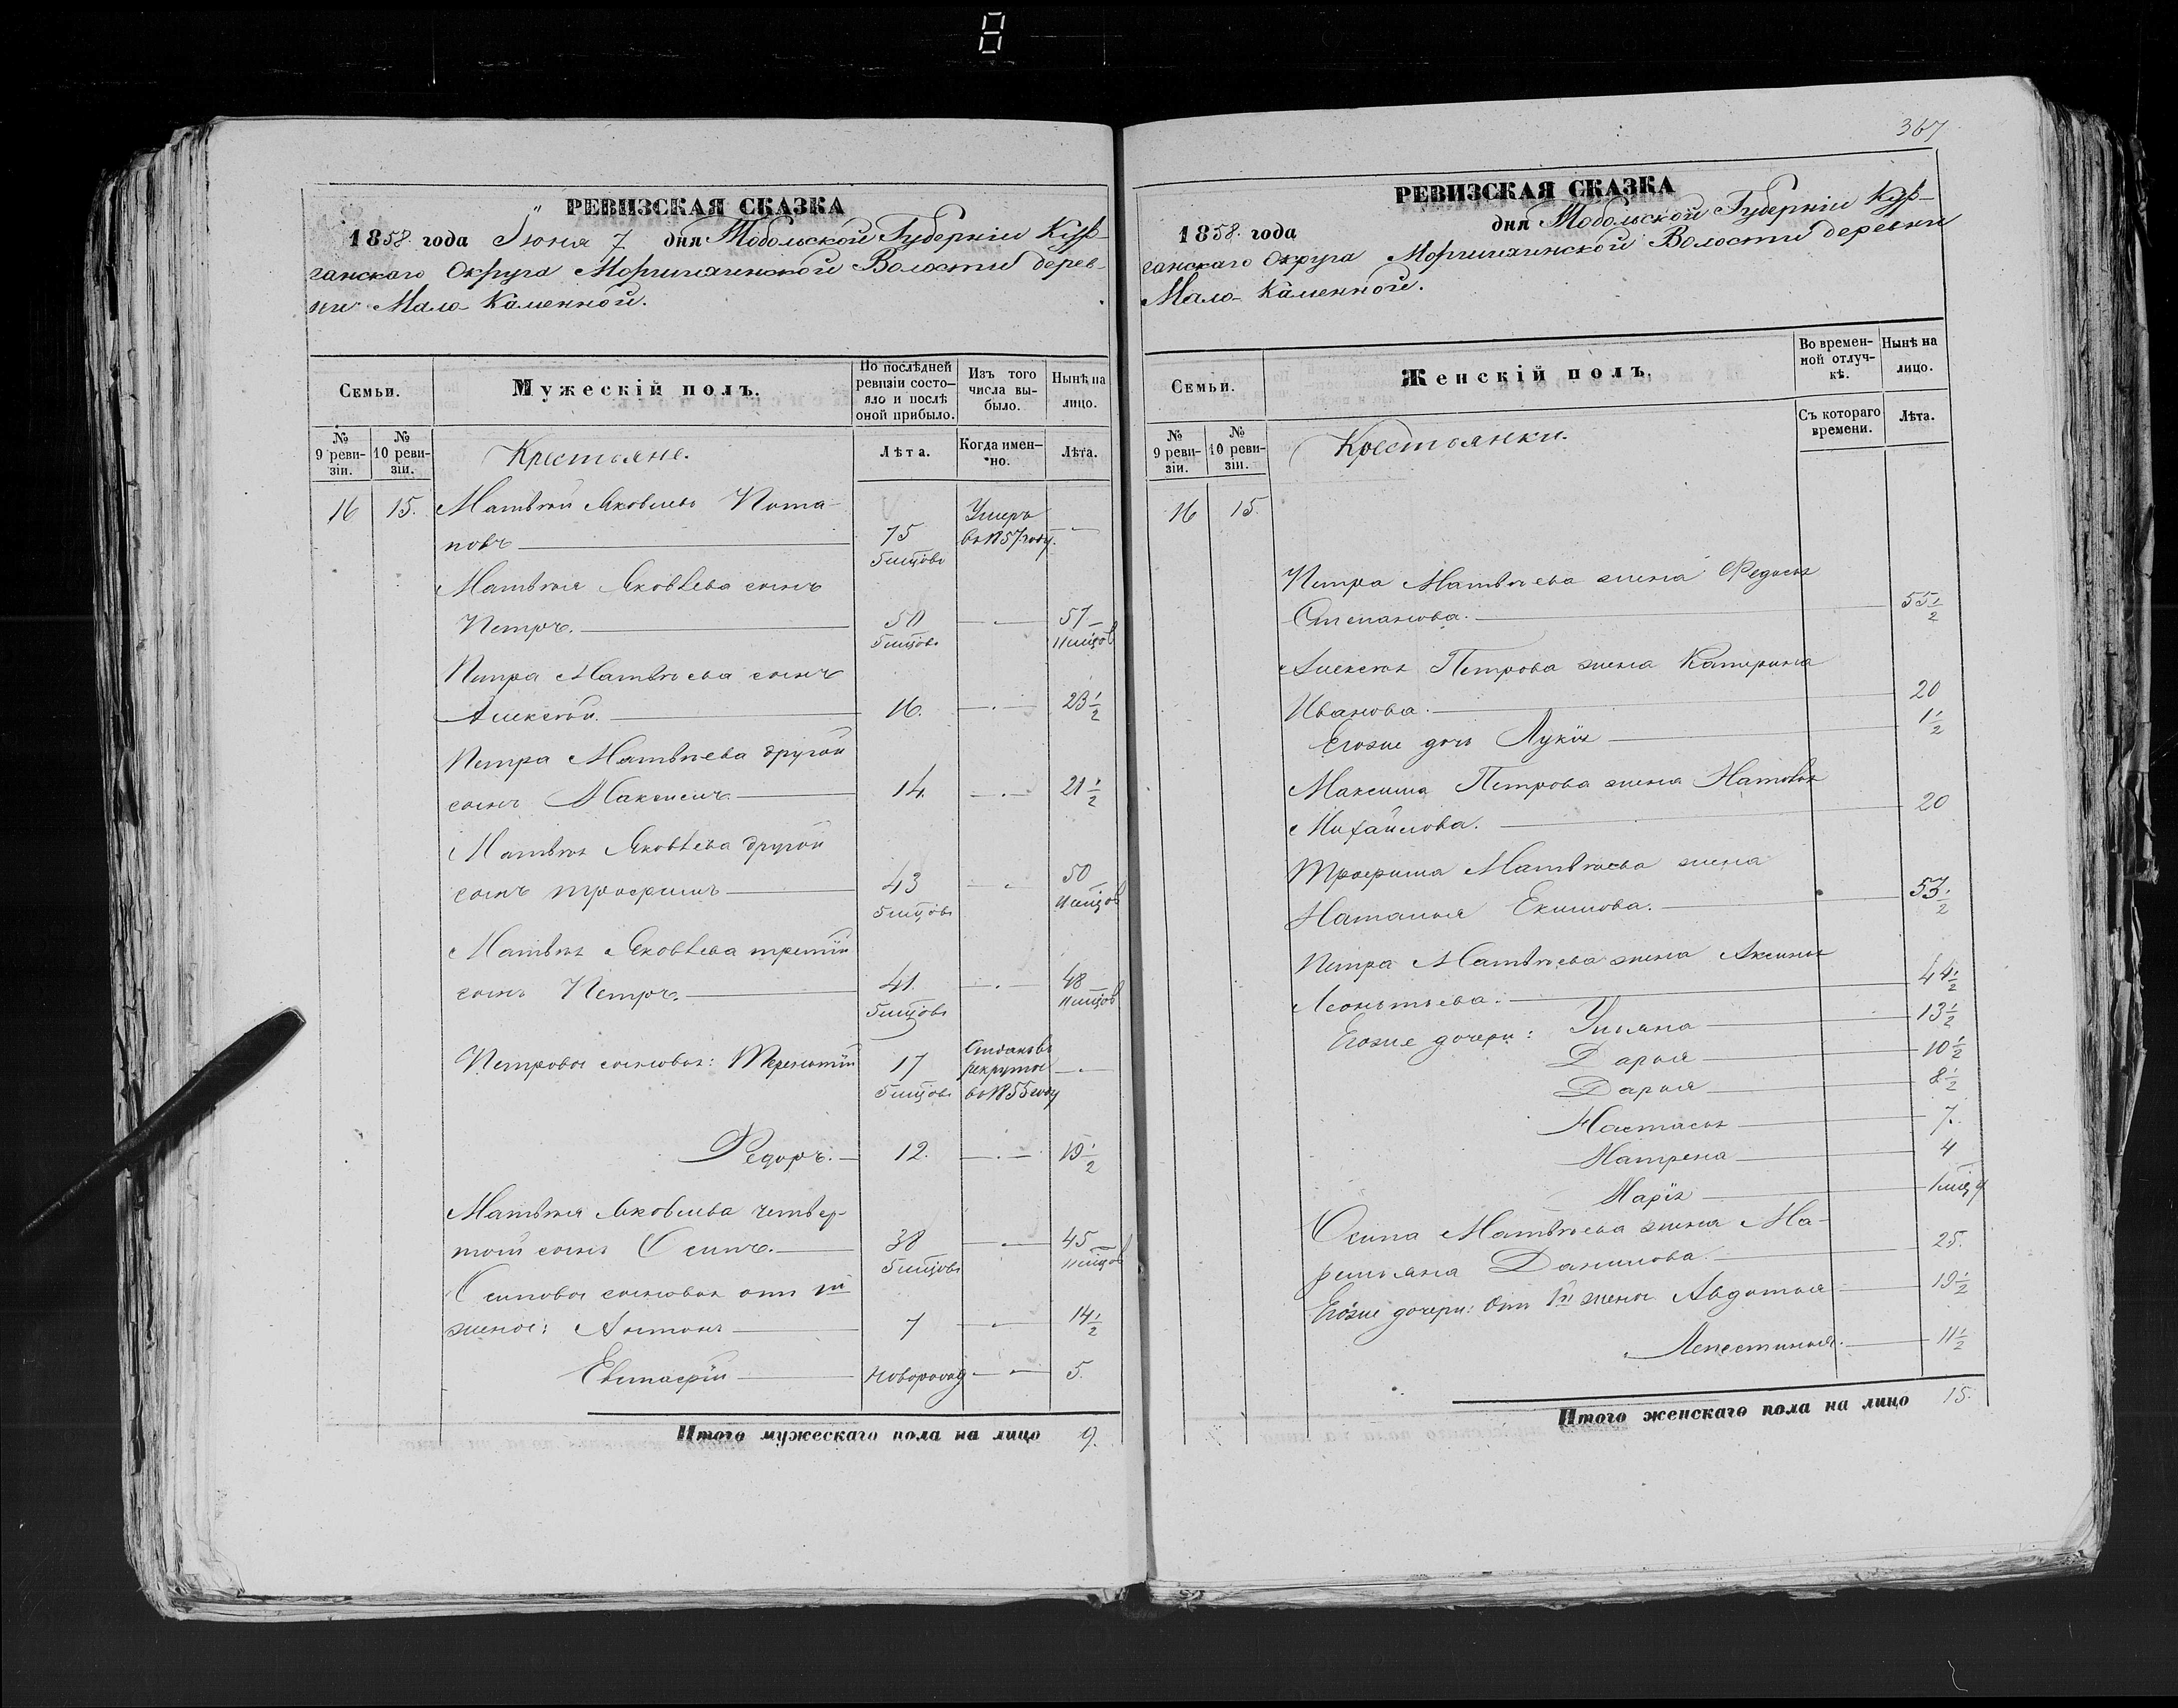 РЕВИЗСКАЯ СКАЗКА
1858. года Іюня 7 дня Тобольской Губерніи Кур-
ганскаго Округа Моршихинской Волости дерев-
ни Мало-Каменной.
Семьи.
Мужескій полъ.
По послѣдней ревизіи состо-
яло и послѣ
оной прибыло.
Изъ того
числа вы-
было.
Нынѣ на
лицо.
№
9 реви-
зіи.
№
10 реви-
зіи.
Крестьяне.
Лѣта.
Когда имен-
но.
Лѣта.
16 15. Матвѣй Яковлевъ Пота- Умеръ
повъ 75 въ 1857 году. —
5 мцовъ
Матвѣя Яковлева сынъ
Петръ. 50 — 57
5 мцовъ 11 мцов
Петра Матвѣева сынъ
Алексѣй. 16. — 23 1/2
Петра Матвѣева другой
сынъ Максимъ 14. — 21 1/2
Матвѣя Яковлева другой
сынъ Трофимъ 43 — 50
5 мцовъ 11 мцов
Матвѣя Яковлева третій
сынъ Петръ. 41. — 48
5 мцовъ 11 мцов
Петровы сыновья: Терентій 17 Отданъ въ
рекруты —
5 мцовъ въ 1855 году
Федоръ. 12. — 19 1/2
Матвѣя Яковлева четвер-
той сынъ Осипъ. 38 — 45
5 мцовъ 11 мцов
Осиповы сыновья отъ 1й
жены: Антонъ 7 — 14 1/2
Евстафій новорожд — 5.
Итого мужескаго пола на лицо 9.
367
РЕВИЗСКАЯ СКАЗКА
1858. года дня Тобольской Губерніи Кур-
ганскаго Округа Моршихинской Волости деревни
Мало-Каменной.
Семьи.
Женскій полъ.
Во времен-
ной отлуч-
кѣ.
Нынѣ на
лицо.
№
9 реви-
зіи.
№
10 реви-
зіи.
Крестьянки.
Съ котораго
времени.
Лѣта.
16 15.
Петра Матвѣева жена Федосья
Степанова. 55 1/2
Алексѣя Петрова жена Катерина
Иванова. 20
Егоже дочь Лукія 1 1/2
Максима Петрова жена Наталья
Михайлова. 20
Трофима Матвѣева жена
Наталья Екимова. 53 1/2
Петра Матвѣева жена Аксинья
Леонтьева. 44 1/2
Егоже дочери: Ульяна 13 1/2
Дарья 10 1/2
Дарья 8 1/2
Настасья 7.
Матрена 4
Марія 1 мцъ
Осипа Матвѣева жена Ма-
ремьяна Данилова. 25.
Егоже дочери: Отъ 1й жены Авдотья 19 1/2
Лепестинья. 11 1/2
Итого женскаго пола на лицо 15.